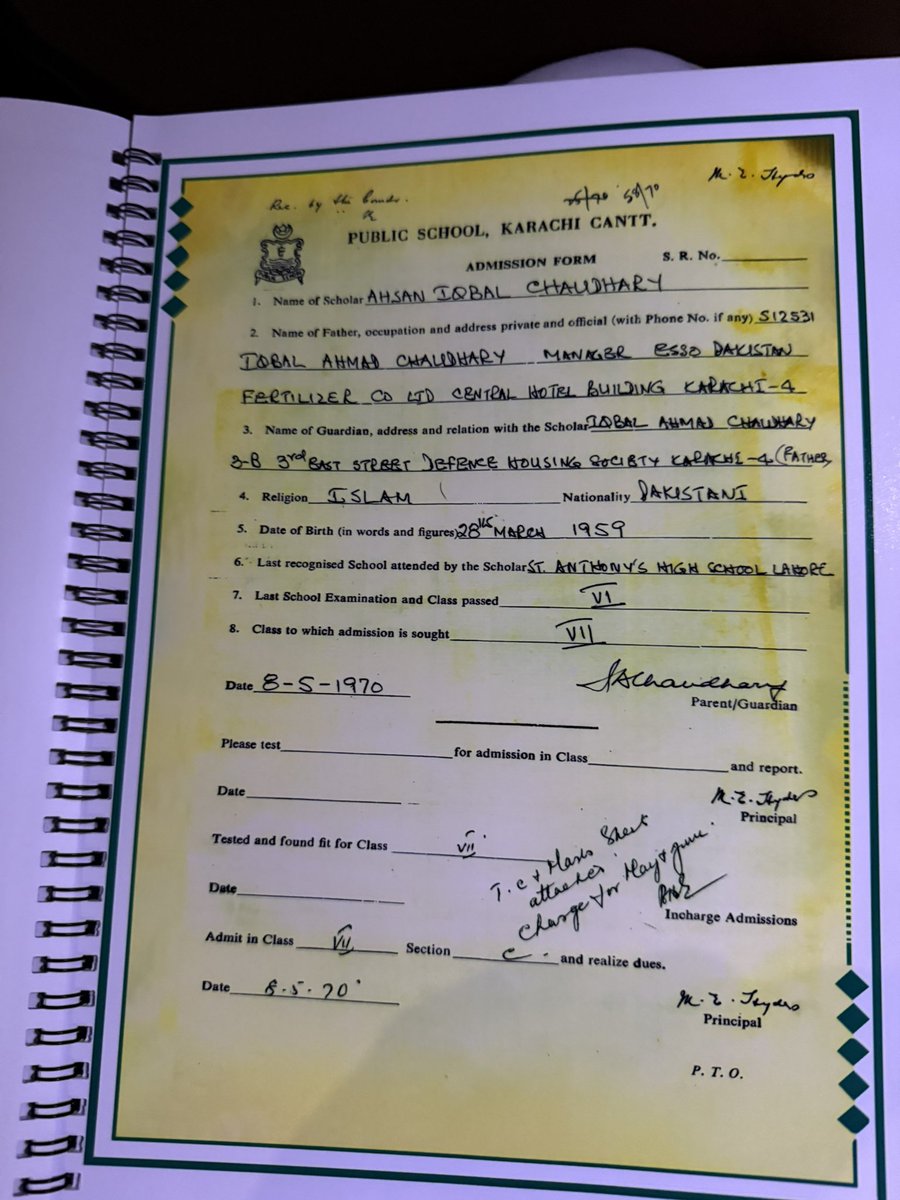 M. E. Hydro
Rec. by the
58/70
PUBLIC SCHOOL, KARACHI CANTT.
ADMISSION FORM
S. R. No.
1. Name of Scholar AHSAN IQBAL CHAUDHARY
2. Name of Father, occupation and address private and official (with Phone No. if any) 512531
IQBAL AHMAD CHAUDHARY MANAGER ESSO PAKISTAN
FERTILIZER CO LTD CENTRAL HOTEL BUILDING KARACHI-4
3. Name of Guardian, address and relation with the Scholar IQBAL AHMAD CHAUDHARY
3-B 3rd EAST STREET DEFENCE HOUSING SOCIETY KARACHI-4 (FATHER)
4. Religion ISLAM Nationality PAKISTANI
5. Date of Birth (in words and figures) 28th MARCH 1959
6. Last recognised School attended by the Scholar ST. ANTHONY'S HIGH SCHOOL LAHORE
7. Last School Examination and Class passed VI
8. Class to which admission is sought VII
Date 8-5-1970
IAChaudhary
Parent/Guardian
Please test for admission in Class and report.
Date
M. E. Hydro
Principal
Tested and found fit for Class VII
T.C & Marks Sheet
attached
Charge for May & June.
Date
Incharge Admissions
Admit in Class VII Section C and realize dues.
Date 8.5.70
M. E. Hydro
Principal
P. T. O.